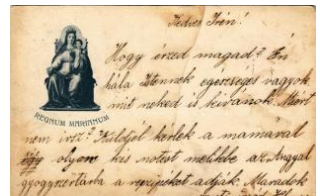 Kedves Irén!
Hogy érzed magad? Én
hála Istennek egészséges vagyok
mit neked is kivánok. Miért
REGNUM MARIANUM
nem irsz? Küldjél kérlek a mamával
egy olyan kis notest melkbe az Anggal
gyogyszertárba a recipéket adják. Maradok